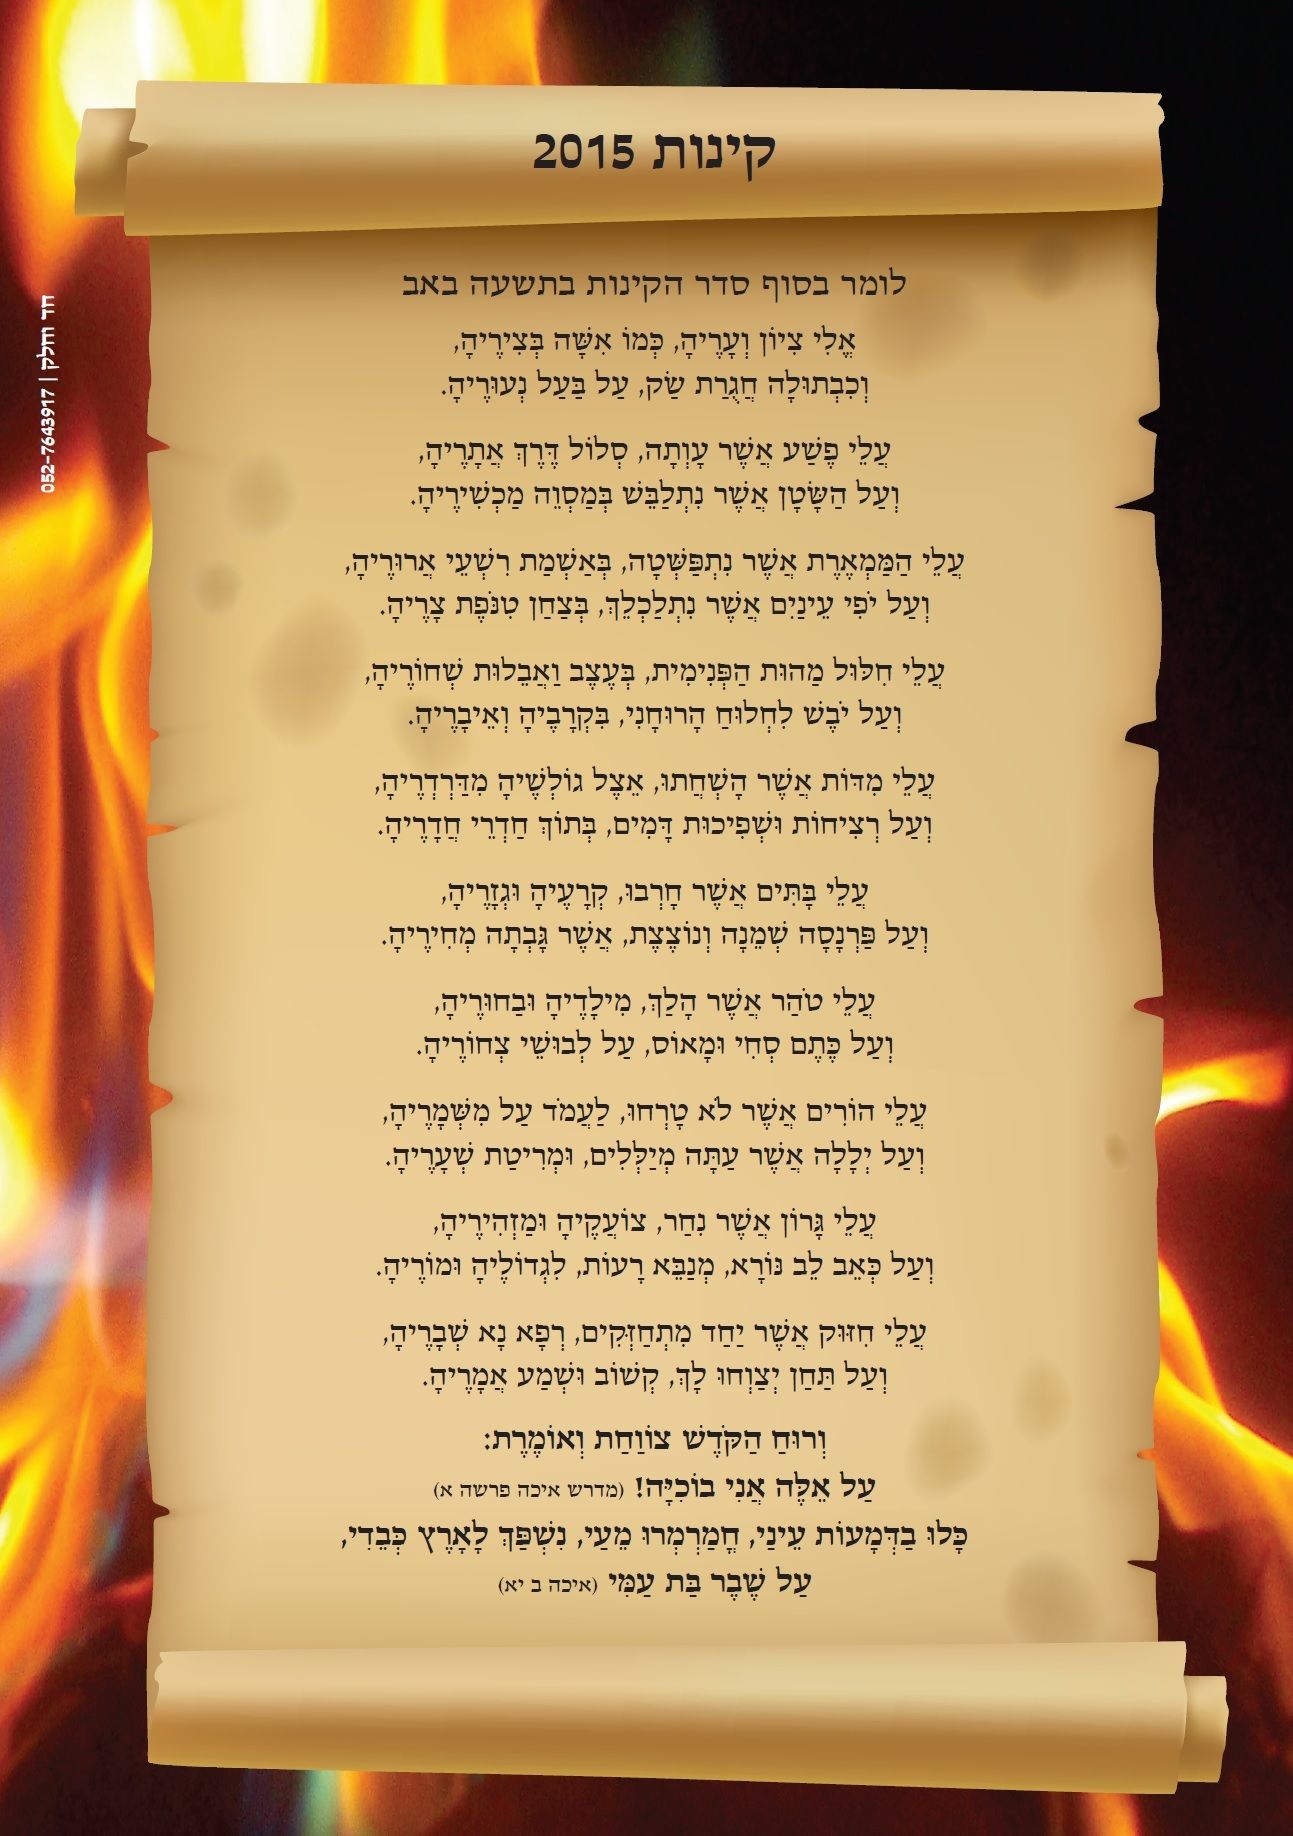 קינות 2015
לומר בסוף סדר הקינות בתשעה באב
אֱלִי צִיוֹן וְעָרֶיהָ, כְּמוֹ אִשָּׁה בְּצִירֶיהָ,
וְכִבְתוּלָה חֲגֻרַת שַׂק, עַל בַּעַל נְעוּרֶיהָ.
עֲלֵי פֶשַׁע אֲשֶׁר עָוְתָה, סְלוֹל דֶּרֶךְ אֲתָרֶיהָ,
וְעַל הַשָּׂטָן אֲשֶׁר נִתְלַבֵּשׁ בְּמַסְוֵה מַכְשִׁירֶיהָ.
עֲלֵי הַמַּמְאֶרֶת אֲשֶׁר נִתְפַּשְּׁטָה, בְּאַשְׁמַת רִשְׁעֵי אֲרוּרֶיהָ,
וְעַל יֹפִי עֵינַיִם אֲשֶׁר נִתְלַכְלֵךְ, בְּצַחַן טִנֹּפֶת צָרֶיהָ.
עֲלֵי חִלּוּל מַהוּת הַפְּנִימִית, בְּעֶצֶב וַאֲבֵלוּת שְׁחוֹרֶיהָ,
וְעַל יֹבֶשׁ לִחְלוּחַ הָרוּחָנִי, בִּקְרָבֶיהָ וְאֵיבָרֶיהָ.
עֲלֵי מִדּוֹת אֲשֶׁר הָשְׁחֲתוּ, אֵצֶל גּוֹלְשֶׁיהָ מִדַּרְדְרֶיהָ,
וְעַל רְצִיחוֹת וּשְׁפִיכוּת דָּמִים, בְּתוֹךְ חַדְרֵי חֲדָרֶיהָ.
עֲלֵי בָּתִּים אֲשֶׁר חָרְבוּ, קְרָעֶיהָ וּגְזָרֶיהָ,
וְעַל פַּרְנָסָה שְׁמֵנָה וְנוֹצֶצֶת, אֲשֶׁר גָּבְתָה מְחִירֶיהָ.
עֲלֵי טֹהַר אֲשֶׁר הָלַךְ, מִילָדֶיהָ וּבַחוּרֶיהָ,
וְעַל כֶּתֶם סְחִי וּמָאוֹס, עַל לְבוּשֵׁי צְחוֹרֶיהָ.
עֲלֵי הוֹרִים אֲשֶׁר לֹא טָרְחוּ, לַעֲמֹד עַל מִשְׁמָרֶיהָ,
וְעַל יְלָלָה אֲשֶׁר עַתָּה מְיַלְּלִים, וּמְרִיטַת שְׂעָרֶיהָ.
עֲלֵי גָּרוֹן אֲשֶׁר נִחַר, צוֹעֲקֶיהָ וּמַזְהִירֶיהָ,
וְעַל כְּאֵב לֵב נוֹרָא, מְנַבֵּא רָעוֹת, לִגְדוֹלֶיהָ וּמוֹרֶיהָ.
עֲלֵי חִזּוּק אֲשֶׁר יַחַד מִתְחַזְּקִים, רְפָא נָא שְׁבָרֶיהָ,
וְעַל תַּחַן יְצַוְחוּ לָךְ, קְשׁוֹב וּשְׁמַע אֲמָרֶיהָ.
וְרוּחַ הַקֹּדֶשׁ צוֹוַחַת וְאוֹמֶרֶת:
עַל אֵלֶּה אֲנִי בוֹכִיָּה! (מדרש איכה פרשה א)
כָּלוּ בַדְּמָעוֹת עֵינַי, חֳמַרְמְרוּ מֵעַי, נִשְׁפַּךְ לָאָרֶץ כְּבֵדִי,
עַל שֶׁבֶר בַּת עַמִּי (איכה ב יא)
חד וחלק | 052-7643917